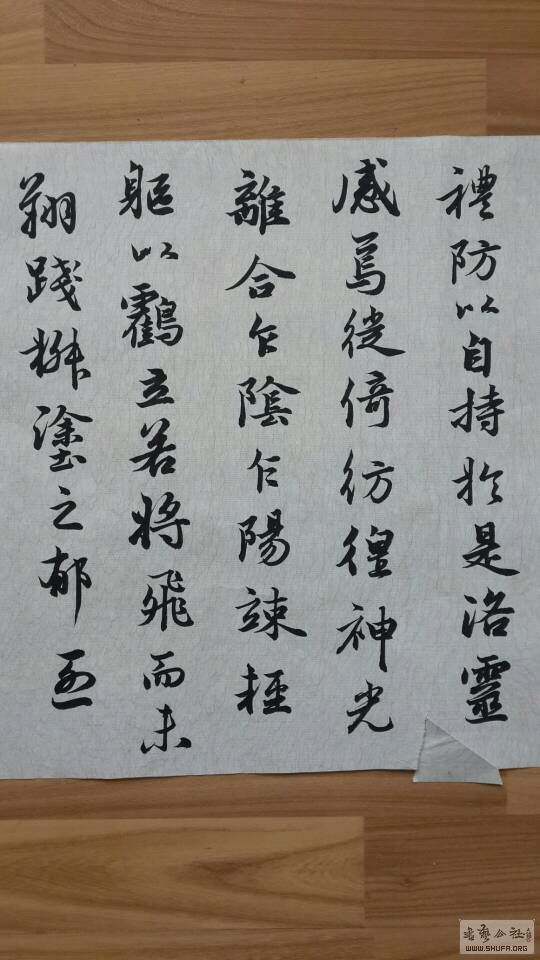 禮防以自持於是洛靈
感焉徙倚彷徨神光
離合乍陰乍陽竦輕
軀以鶴立若將飛而未
翔踐椒塗之郁烈
書藝公社
WWW.SHUFA.ORG